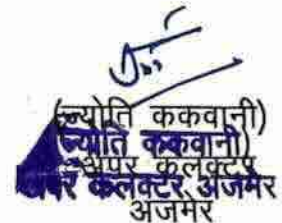 (ज्योति ककवानी)
ज्योति ककवानी)
अपर कलक्टर
अपर कलेक्टर, अजमेर
अजमेर